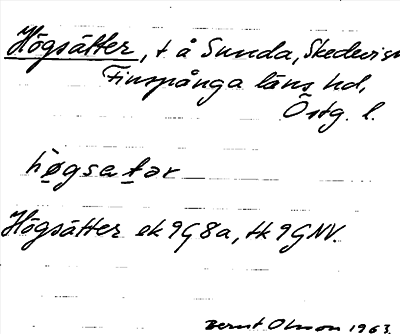 Högsätter, t å Sunda, Skedevi sn
Finspånga läns hd,
Östg. l.
högsatər
Högsätter ek 9G8a, tk 9GNV.
Bernt Olsson 1963